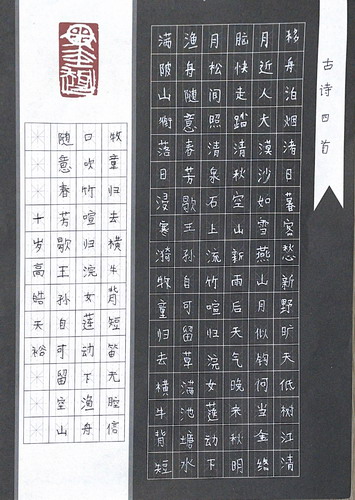 古诗四首
移舟泊烟渚日暮客愁新野旷天低树江清
月近人大漠沙如雪燕山月似钩何当金络
脑快走踏清秋空山新雨后天气晚来秋明
月松间照清泉石上流竹喧归浣女莲动下
渔舟随意春芳歇王孙自可留草满池塘水
满陂山衔落日浸寒漪牧童归去横牛背短
牧童归去横牛背短笛无腔信
口吹竹喧归浣女莲动下渔舟
随意春芳歇王孙自可留空山
十岁高皓天裕